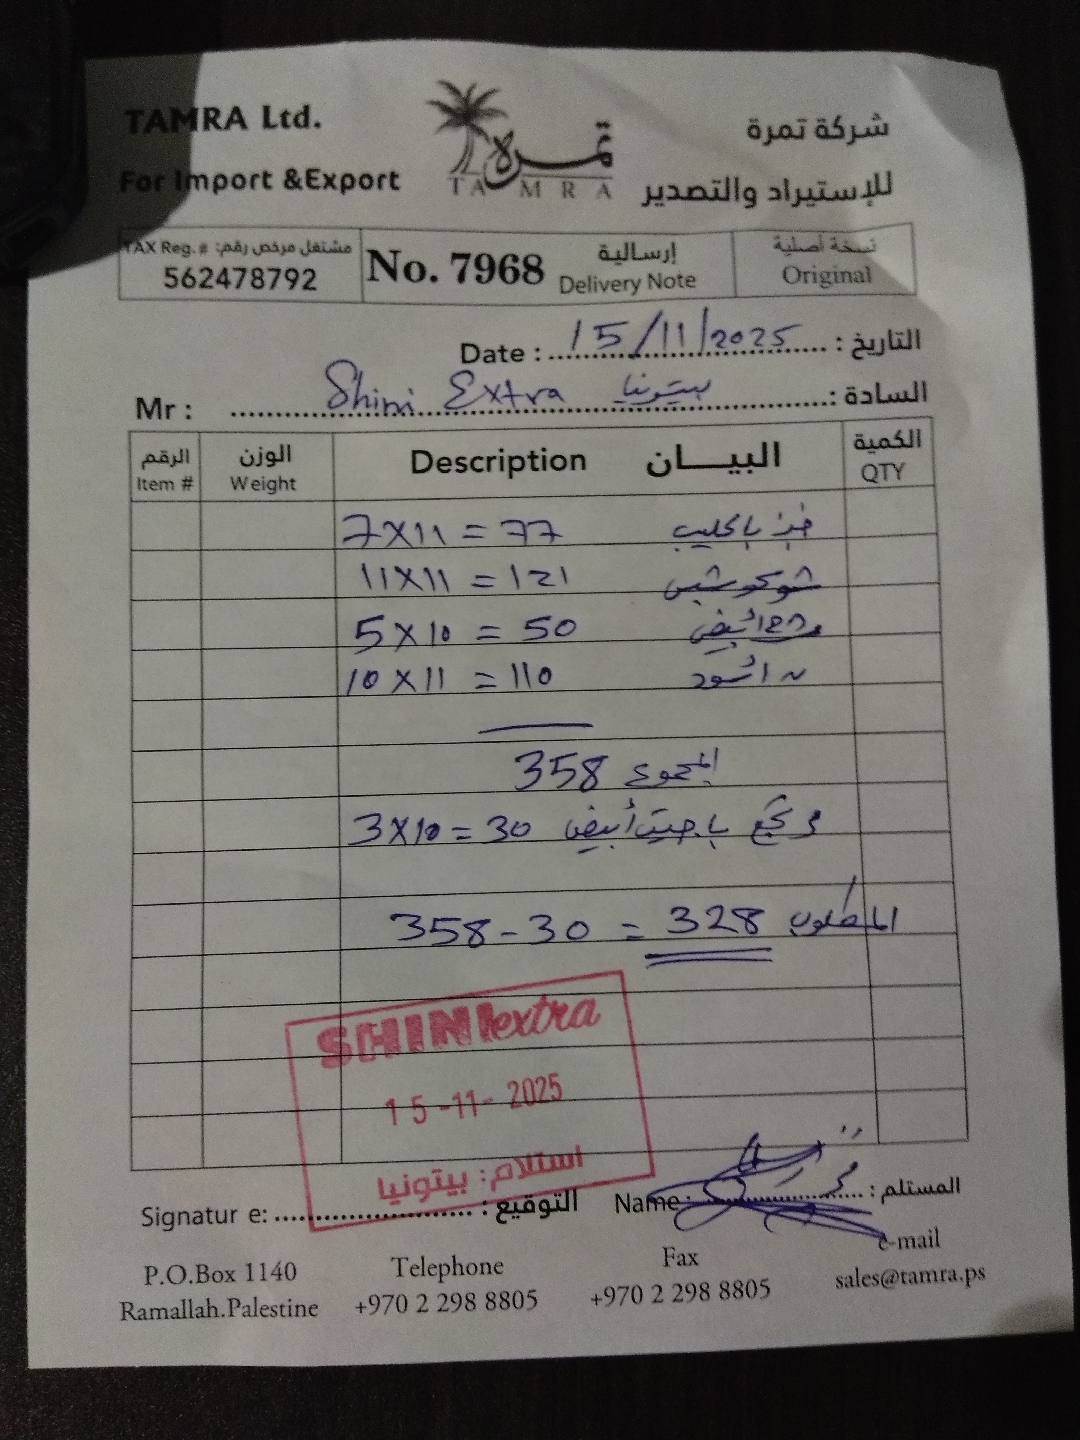 TAMRA Ltd.
For Import &Export
تمرة
TAMRA
شركة تمرة
للإستيراد والتصدير
TAX Reg. # مشتغل مرخص رقم:
562478792
No. 7968
إرسالية
Delivery Note
نسخة أصلية
Original
Date : 15/11/2025 التاريخ :
Mr : Shini Extra بيتونيا السادة :
الرقم الوزن Description البيــــان الكمية
Item # Weight QTY
7x11 = 77 خبز
11x11 = 121
5x10 = 50 أبيض
10x11 = 110 أسود
358 المجموع
3x10 = 30 أبيض
358-30 = 328 المطلوب
SHINI extra
15-11-2025
استلام: بيتونيا
Signatur e: التوقيع : Name: المستلم :
P.O.Box 1140
Ramallah.Palestine
Telephone
+970 2 298 8805
Fax
+970 2 298 8805
e-mail
sales@tamra.ps